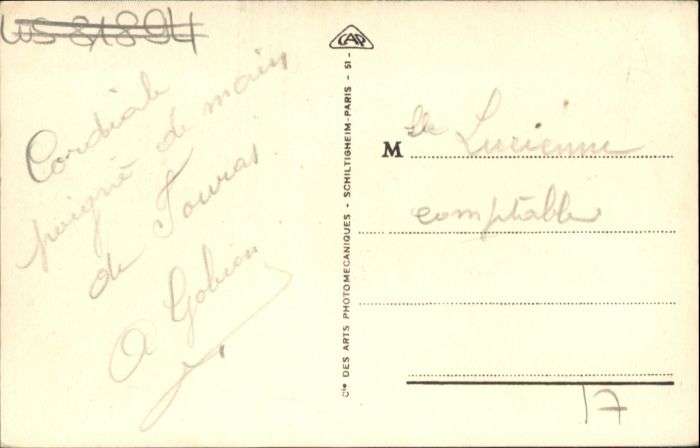 WS 81894
Cordiale
poigné de main
de Touras
A Gobion
CAP
Cie DES ARTS PHOTOMECANIQUES - SCHILTIGHEIM-PARIS - 51 -
Mlle Lucienne
comptable
17